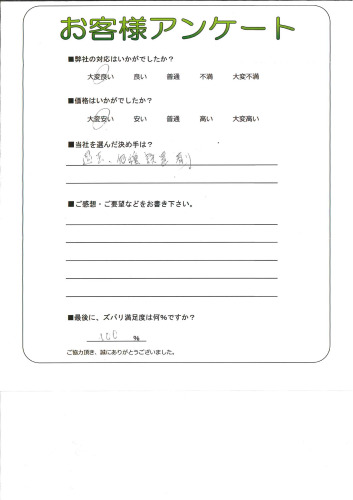 お客様アンケート
■弊社の対応はいかがでしたか？
大変良い 良い 普通 不満 大変不満
■価格はいかがでしたか？
大変安い 安い 普通 高い 大変高い
■当社を選んだ決め手は？
■ご感想・ご要望などをお書き下さい。
■最後に、ズバリ満足度は何％ですか？
100 ％
ご協力頂き、誠にありがとうございました。